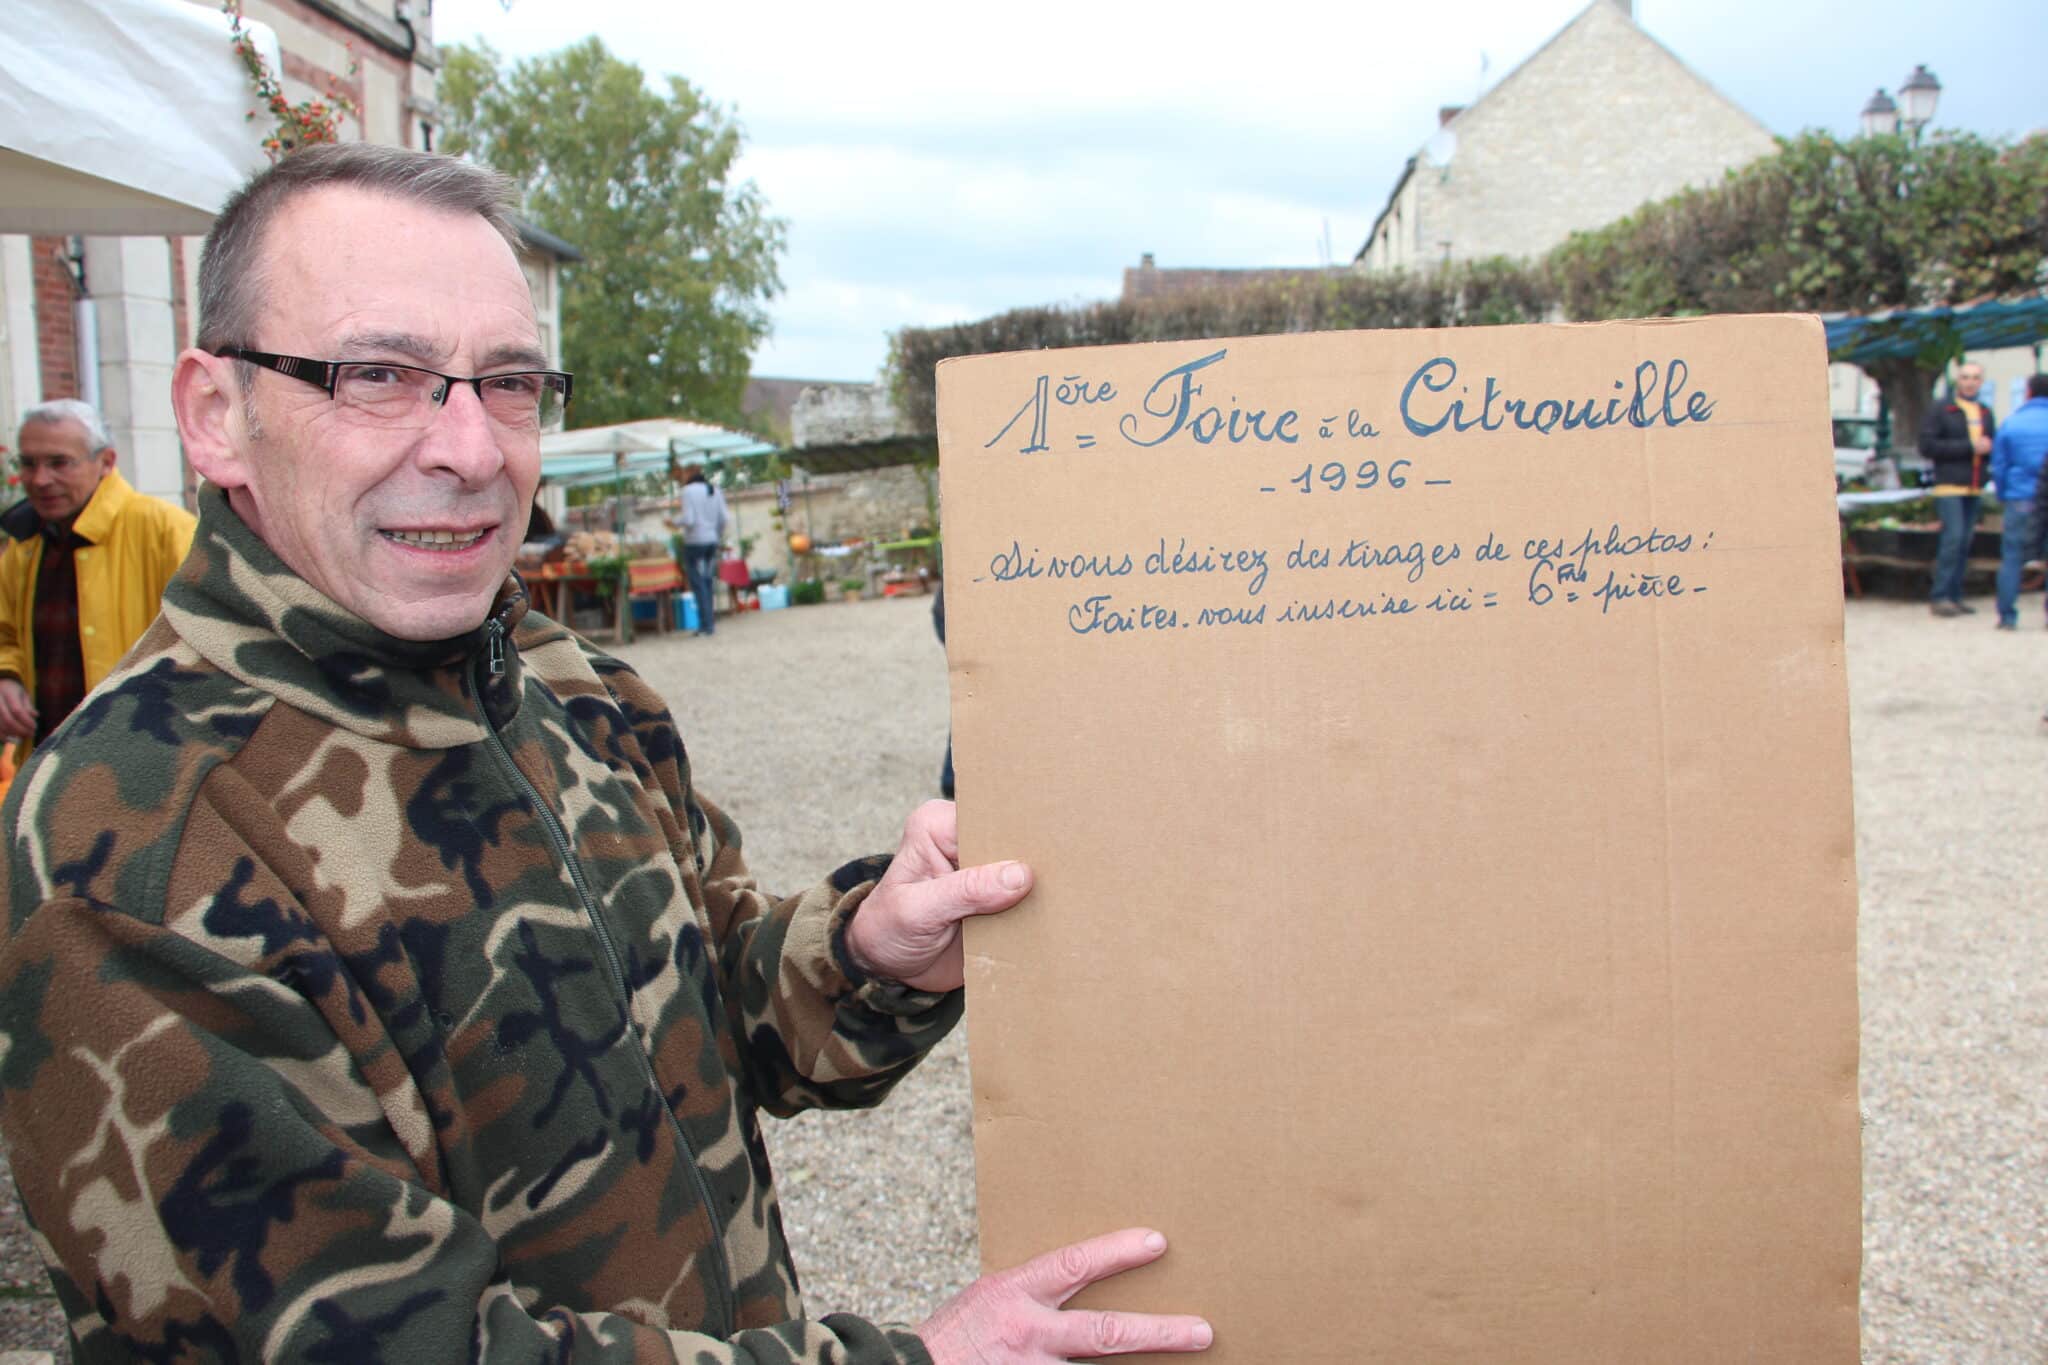 1ère Foire à la Citrouille
- 1996 -
- Si vous désirez des tirages de ces photos :
Faites-vous inscrire ici = 6 Frs pièce -